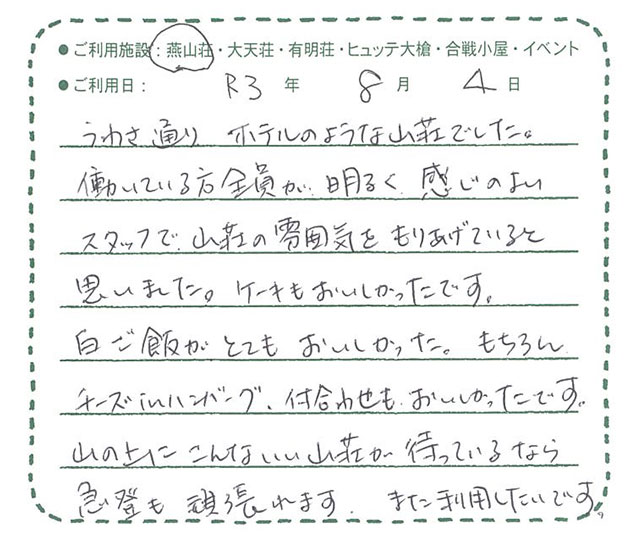 ●ご利用施設：燕山荘・大天荘・有明荘・ヒュッテ大槍・合戦小屋・イベント
●ご利用日： R3 年 8 月 4 日
うわさ通り ホテルのような山荘でした。
働いている方全員が、明るく、感じのよい
スタッフで、山荘の雰囲気をもりあげていると
思いました。ケーキもおいしかったです。
白ご飯がとてもおいしかった。もちろん
チーズinハンバーグ、付合わせも、おいしかったです。
山の上にこんないい山荘が待っているなら
急登も頑張れます。また利用したいです。